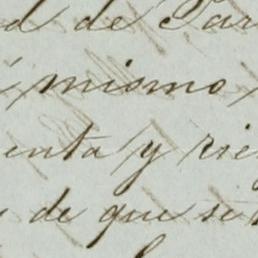 d de Par
í mismo
enta y rie
de que se